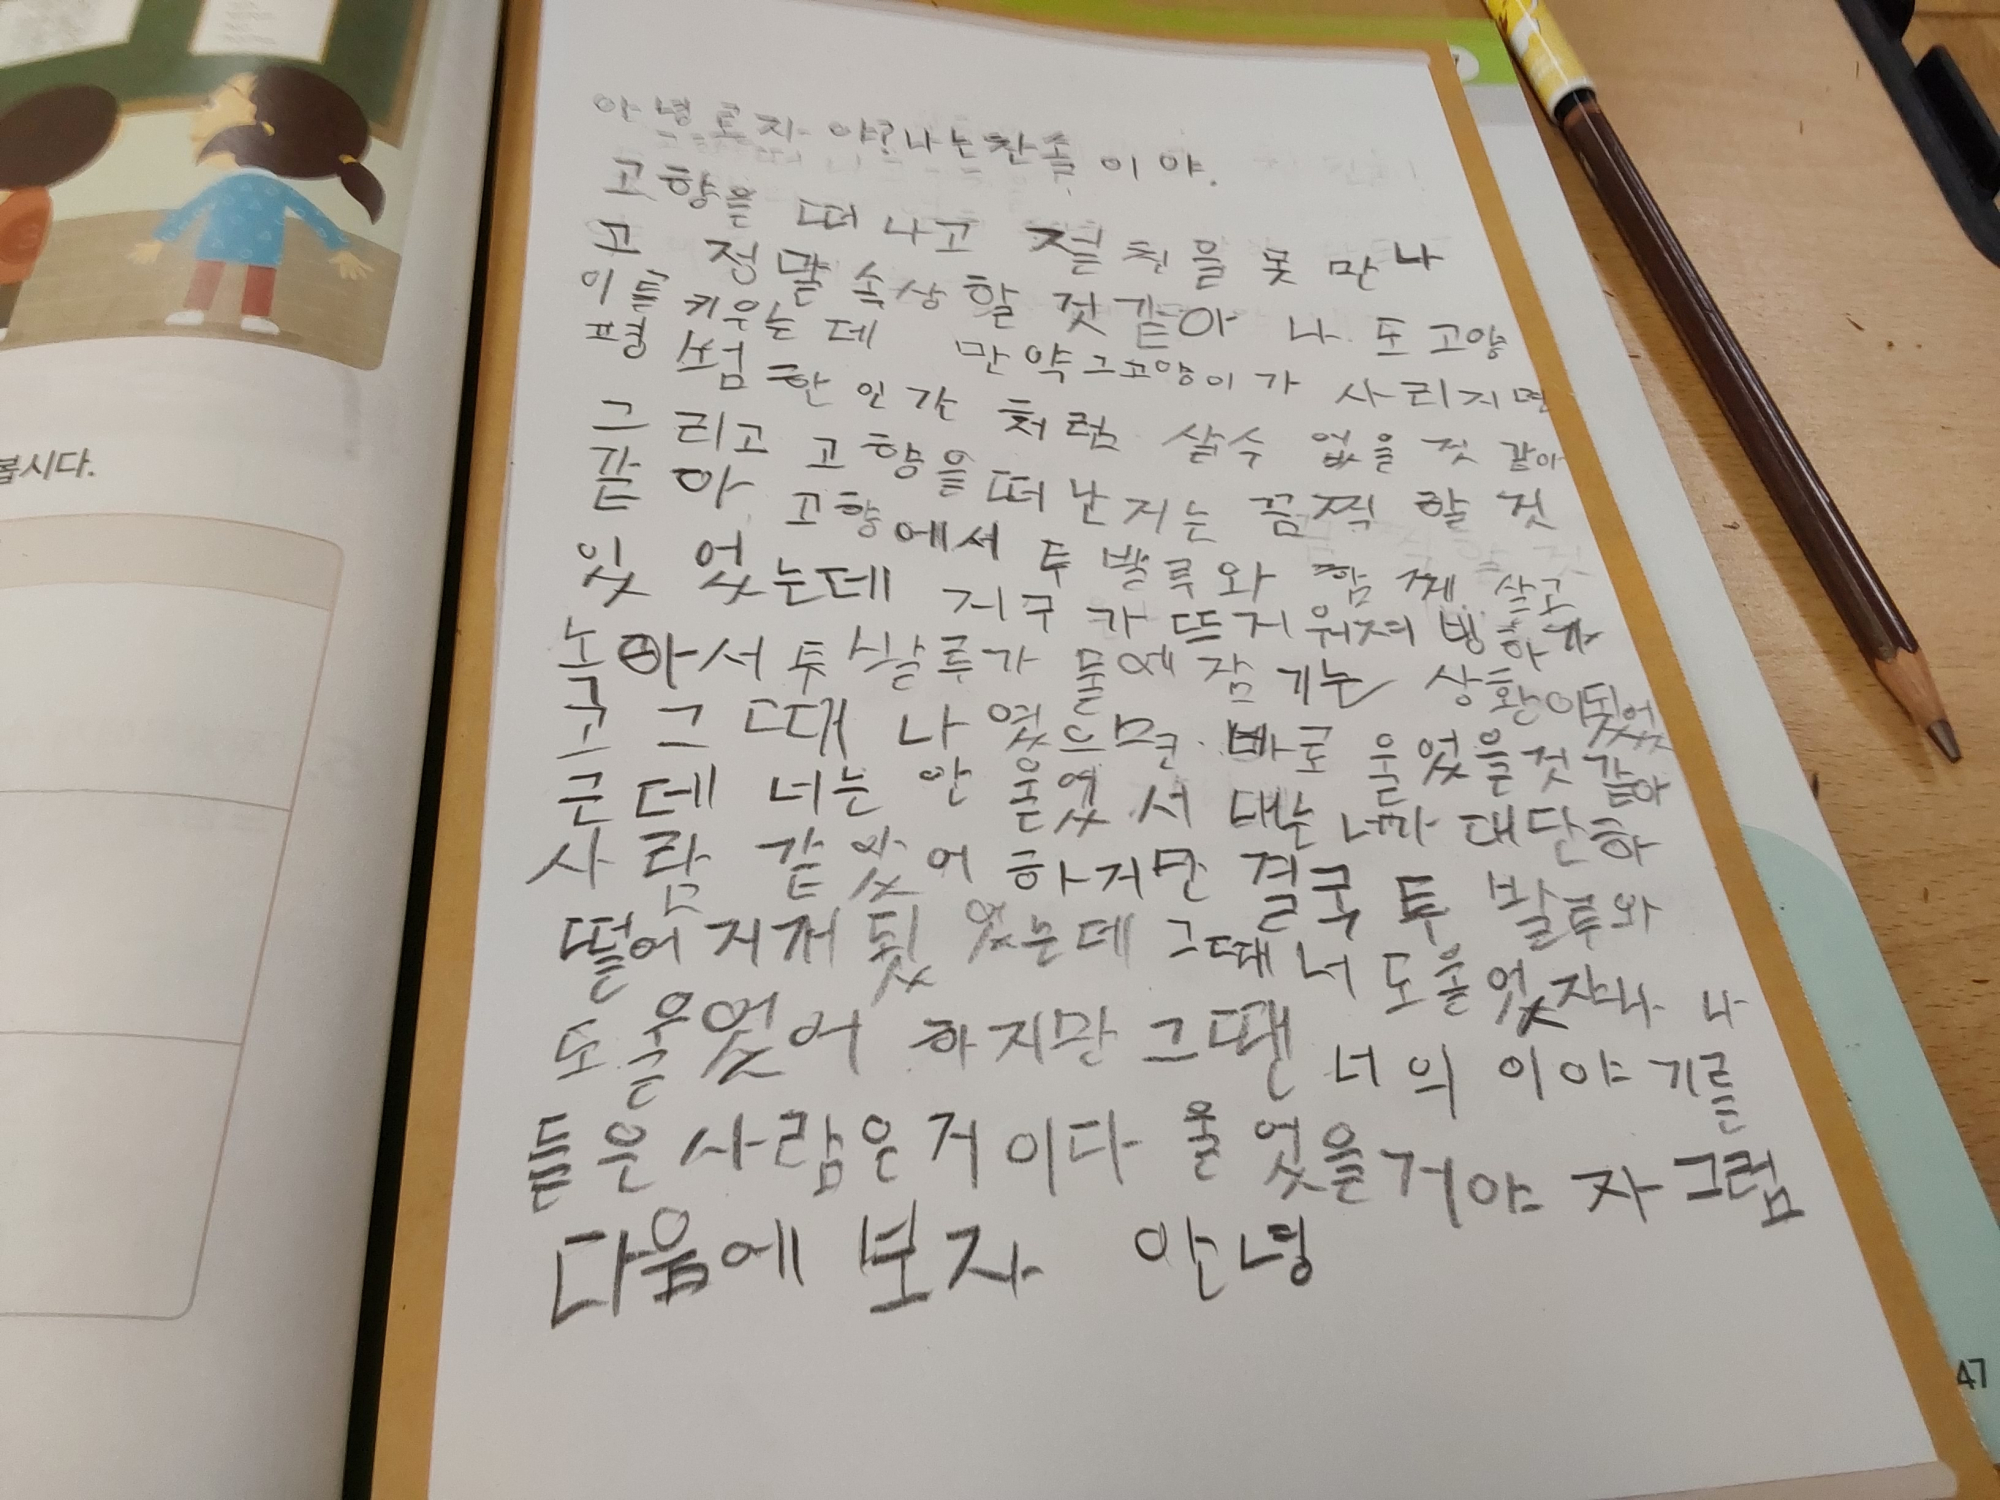 봅시다.
안녕 로자야? 나는 찬솔이야.
고향을 떠나고 절친을 못 만나
고 정말 속상할 것 같아 나도 고양
이를 키우는데 만약 그 고양이가 사리지면
평범한 인간처럼 살 수 없을 것 같아
그리고 고향을 떠난지는 끔찍할 것
같아 고향에서 투발루와 함께 살고
있었는데 지구가 뜨거워져 빙하가
녹아서 투발루가 물에 잠기는 상황이 됬었
고 그때 나였으면 바로 울었을 것 같아
근데 너는 안 울었서 대단하
사람 같았어 하지만 결국 투발루와
떨어지게 됬었는데 그때 너도 울었잖나 나
도 울었어 하지만 그땐 너의 이야기를
들은 사람은 거이 다 울었을 거야 자 그럼
다음에 보자 안녕
47